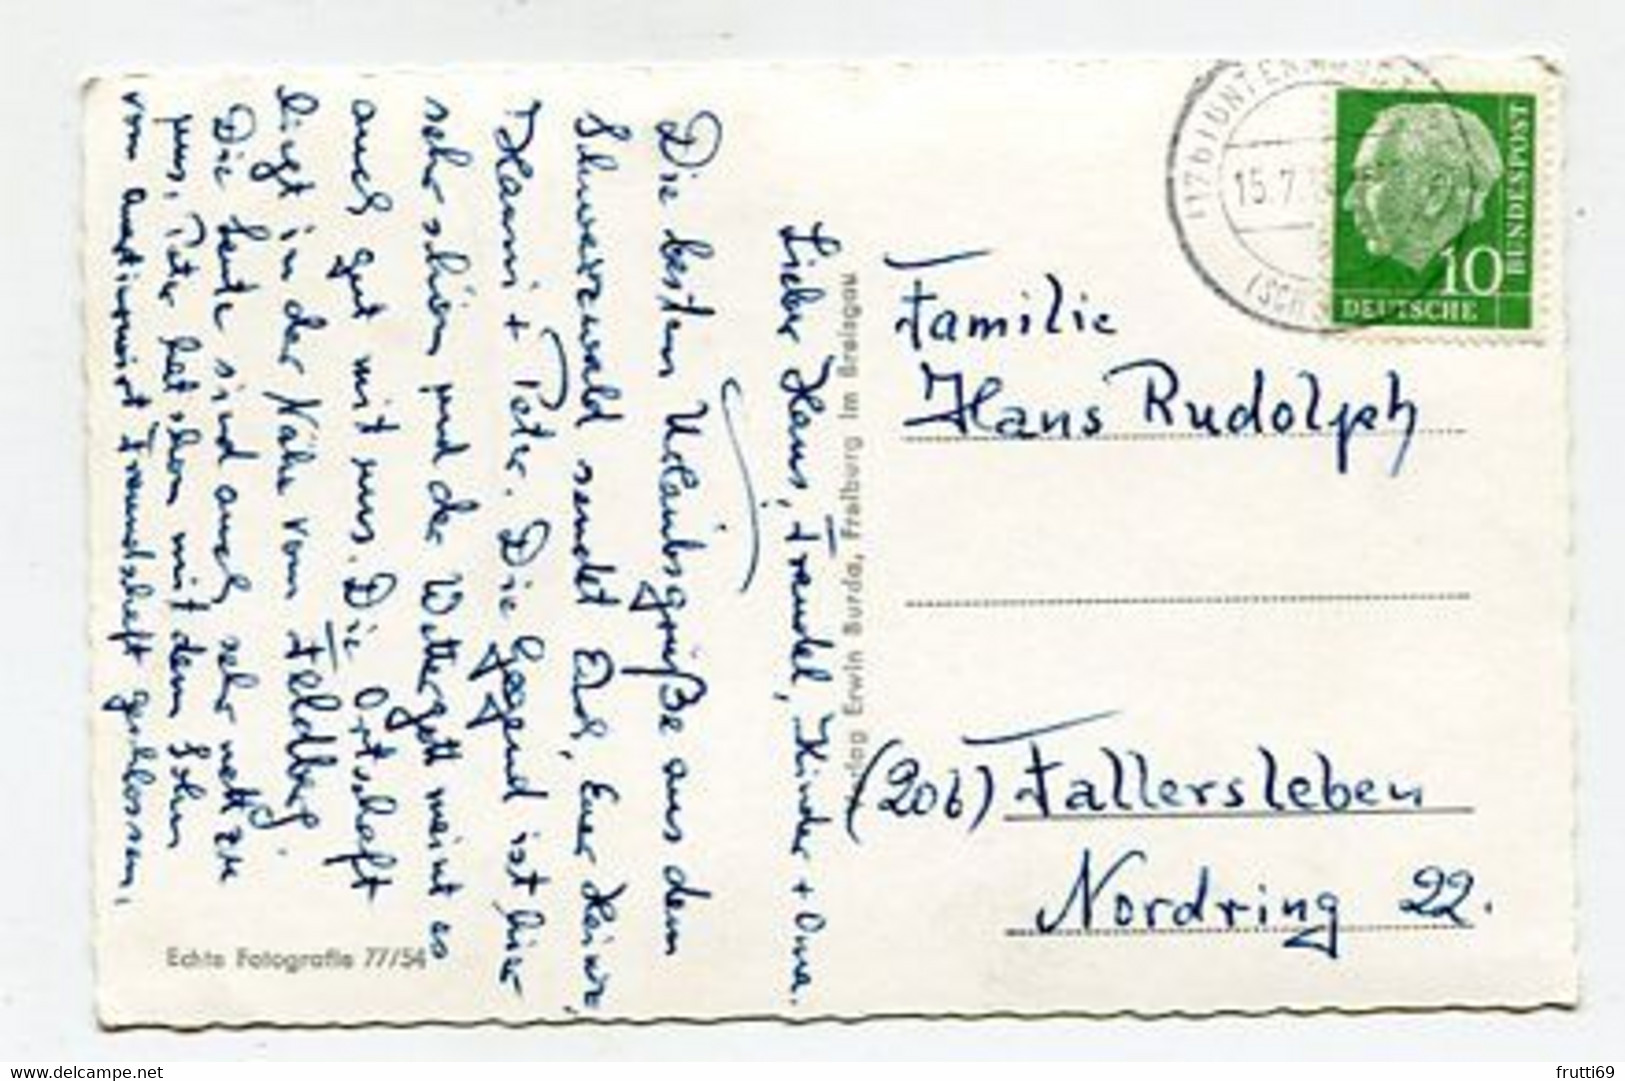 Lieber Hans, Traudel, Kinder + Oma.
Die besten Urlaubsgrüße aus dem
Schwarzwald sendet Euch, Euer Heinz,
Hanni + Peter. Die Gegend ist hier
sehr schön und der Wettergott meint es
auch gut mit uns. Die Ortschaft
liegt in der Nähe vom Feldberg.
Die Leute sind auch sehr nett zu
uns, Peter hat schon mit dem Sohn
vom Gastwirt Freundschaft geschlossen,
Echte Fotografie 77/54
Verlag Erwin Burda, Freiburg im Breisgau
(17b)
15.7.
DEUTSCHE
BUNDESPOST
10
Familie
Hans Rudolph
(20b) Fallersleben
Nordring 22.
frutti69
delcampe.net